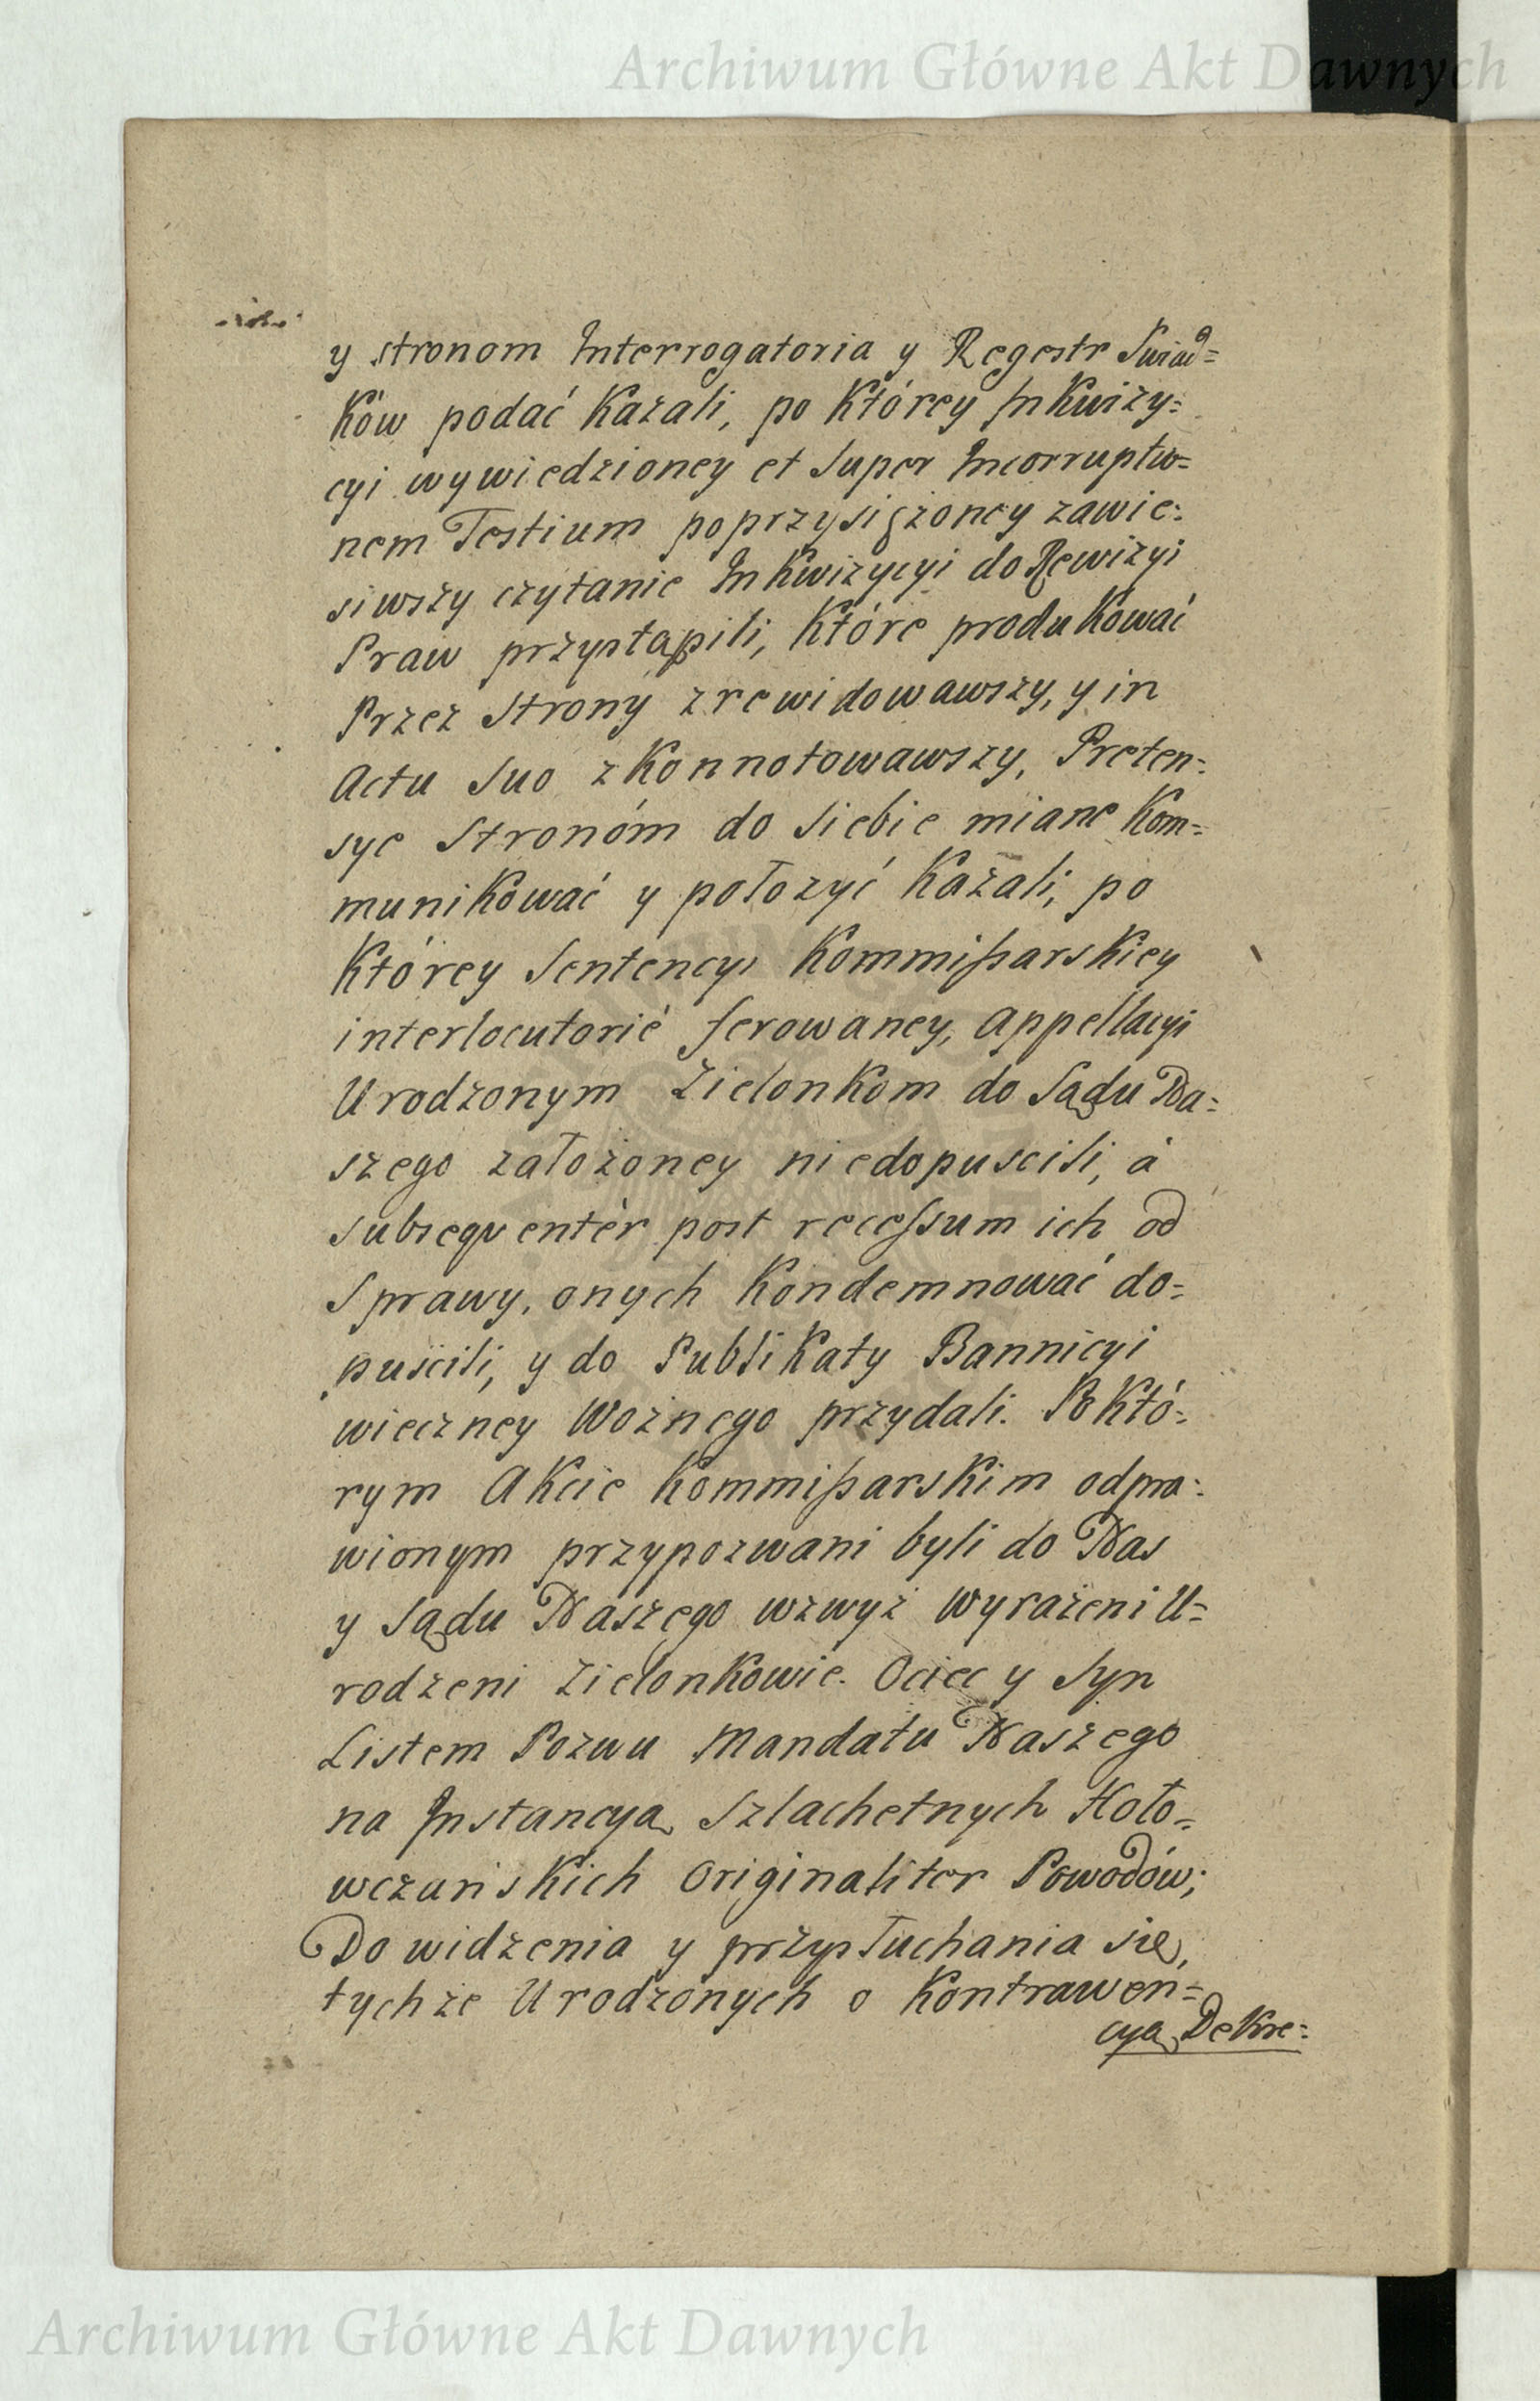 Archiwum Główne Akt Dawnych
y stronom Interrogatoria y Regestr Swiad=
ków podać kazali, po którey Inkwizy=
cyi wywiedzioney et super Incorruptio=
nem Testium poprzysiężoney zawie=
siwszy czytanie Inkwizycyi do Rewizyi
Praw przystąpili, które produkować
Przez Strony zrewidowawszy, y in
Actu suo zkonnotowawszy, Preten=
sye Stronóm do siebie miane kom=
munikować y położyć kazali; po
którey Sentencyi kommißarskiey
interlocutoriè ferowaney, appellacyi
Urodzonym Zielonkom do Sądu Na=
szego założoney niedopuscili, à
subseqventèr post recessum ich od
Sprawy, onych kondemnować do=
puścili, y do Publikaty Bannicyi
wieczney Woznego przydali. Po któ=
rym Akcie kommißarskim odpra=
wionym przypozwani byli do Nas
y Sądu Naszego wzwyż wyrażeni U=
rodzeni Zielonkowie. Ociec y Syn
Listem Pozwu Mandatu Naszego
na Instancyą Szlachetnych Hoło=
wczańskich Originaliter Powodów;
Do widzenia y przysłuchania się,
tychże Urodzonych o kontrawen=
cyą Dekre=
Archiwum Główne Akt Dawnych